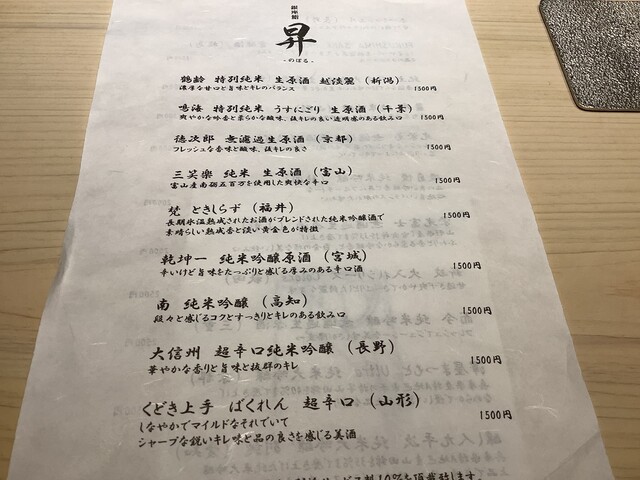 銀座鮨
昇
-のぼる-
鶴齢 特別純米 生原酒 越淡麗 (新潟)
濃厚な甘口と旨味とキレのバランス 1500円
鳴海 特別純米 うすにごり 生原酒 (千葉)
爽やかな吟香と柔らかな酸味、後キレの良い透明感のある飲み口 1500円
徳次郎 無濾過生原酒 (京都)
フレッシュな香味と酸味、後キレの良さ 1500円
三笑楽 純米 生原酒 (富山)
富山産南砺五百万を使用した爽快な辛口 1500円
梵 ときしらず (福井)
長期氷温熟成されたお酒がブレンドされた純米吟醸酒で 1500円
素晴らしい熟成香と淡い黄金色が特徴
乾坤一 純米吟醸原酒 (宮城)
辛いけど旨味をたっぷりと感じる厚みのある辛口酒 1500円
南 純米吟醸 (高知)
段々と感じるコクとすっきりとキレのある飲み口 1500円
大信州 超辛口純米吟醸 (長野)
華やかな香りと旨味と抜群のキレ 1500円
くどき上手 ばくれん 超辛口 (山形)
しなやかでマイルドなそれでいて 1500円
シャープな鋭いキレ味と品の良さを感じる美酒
10%を頂戴致します。